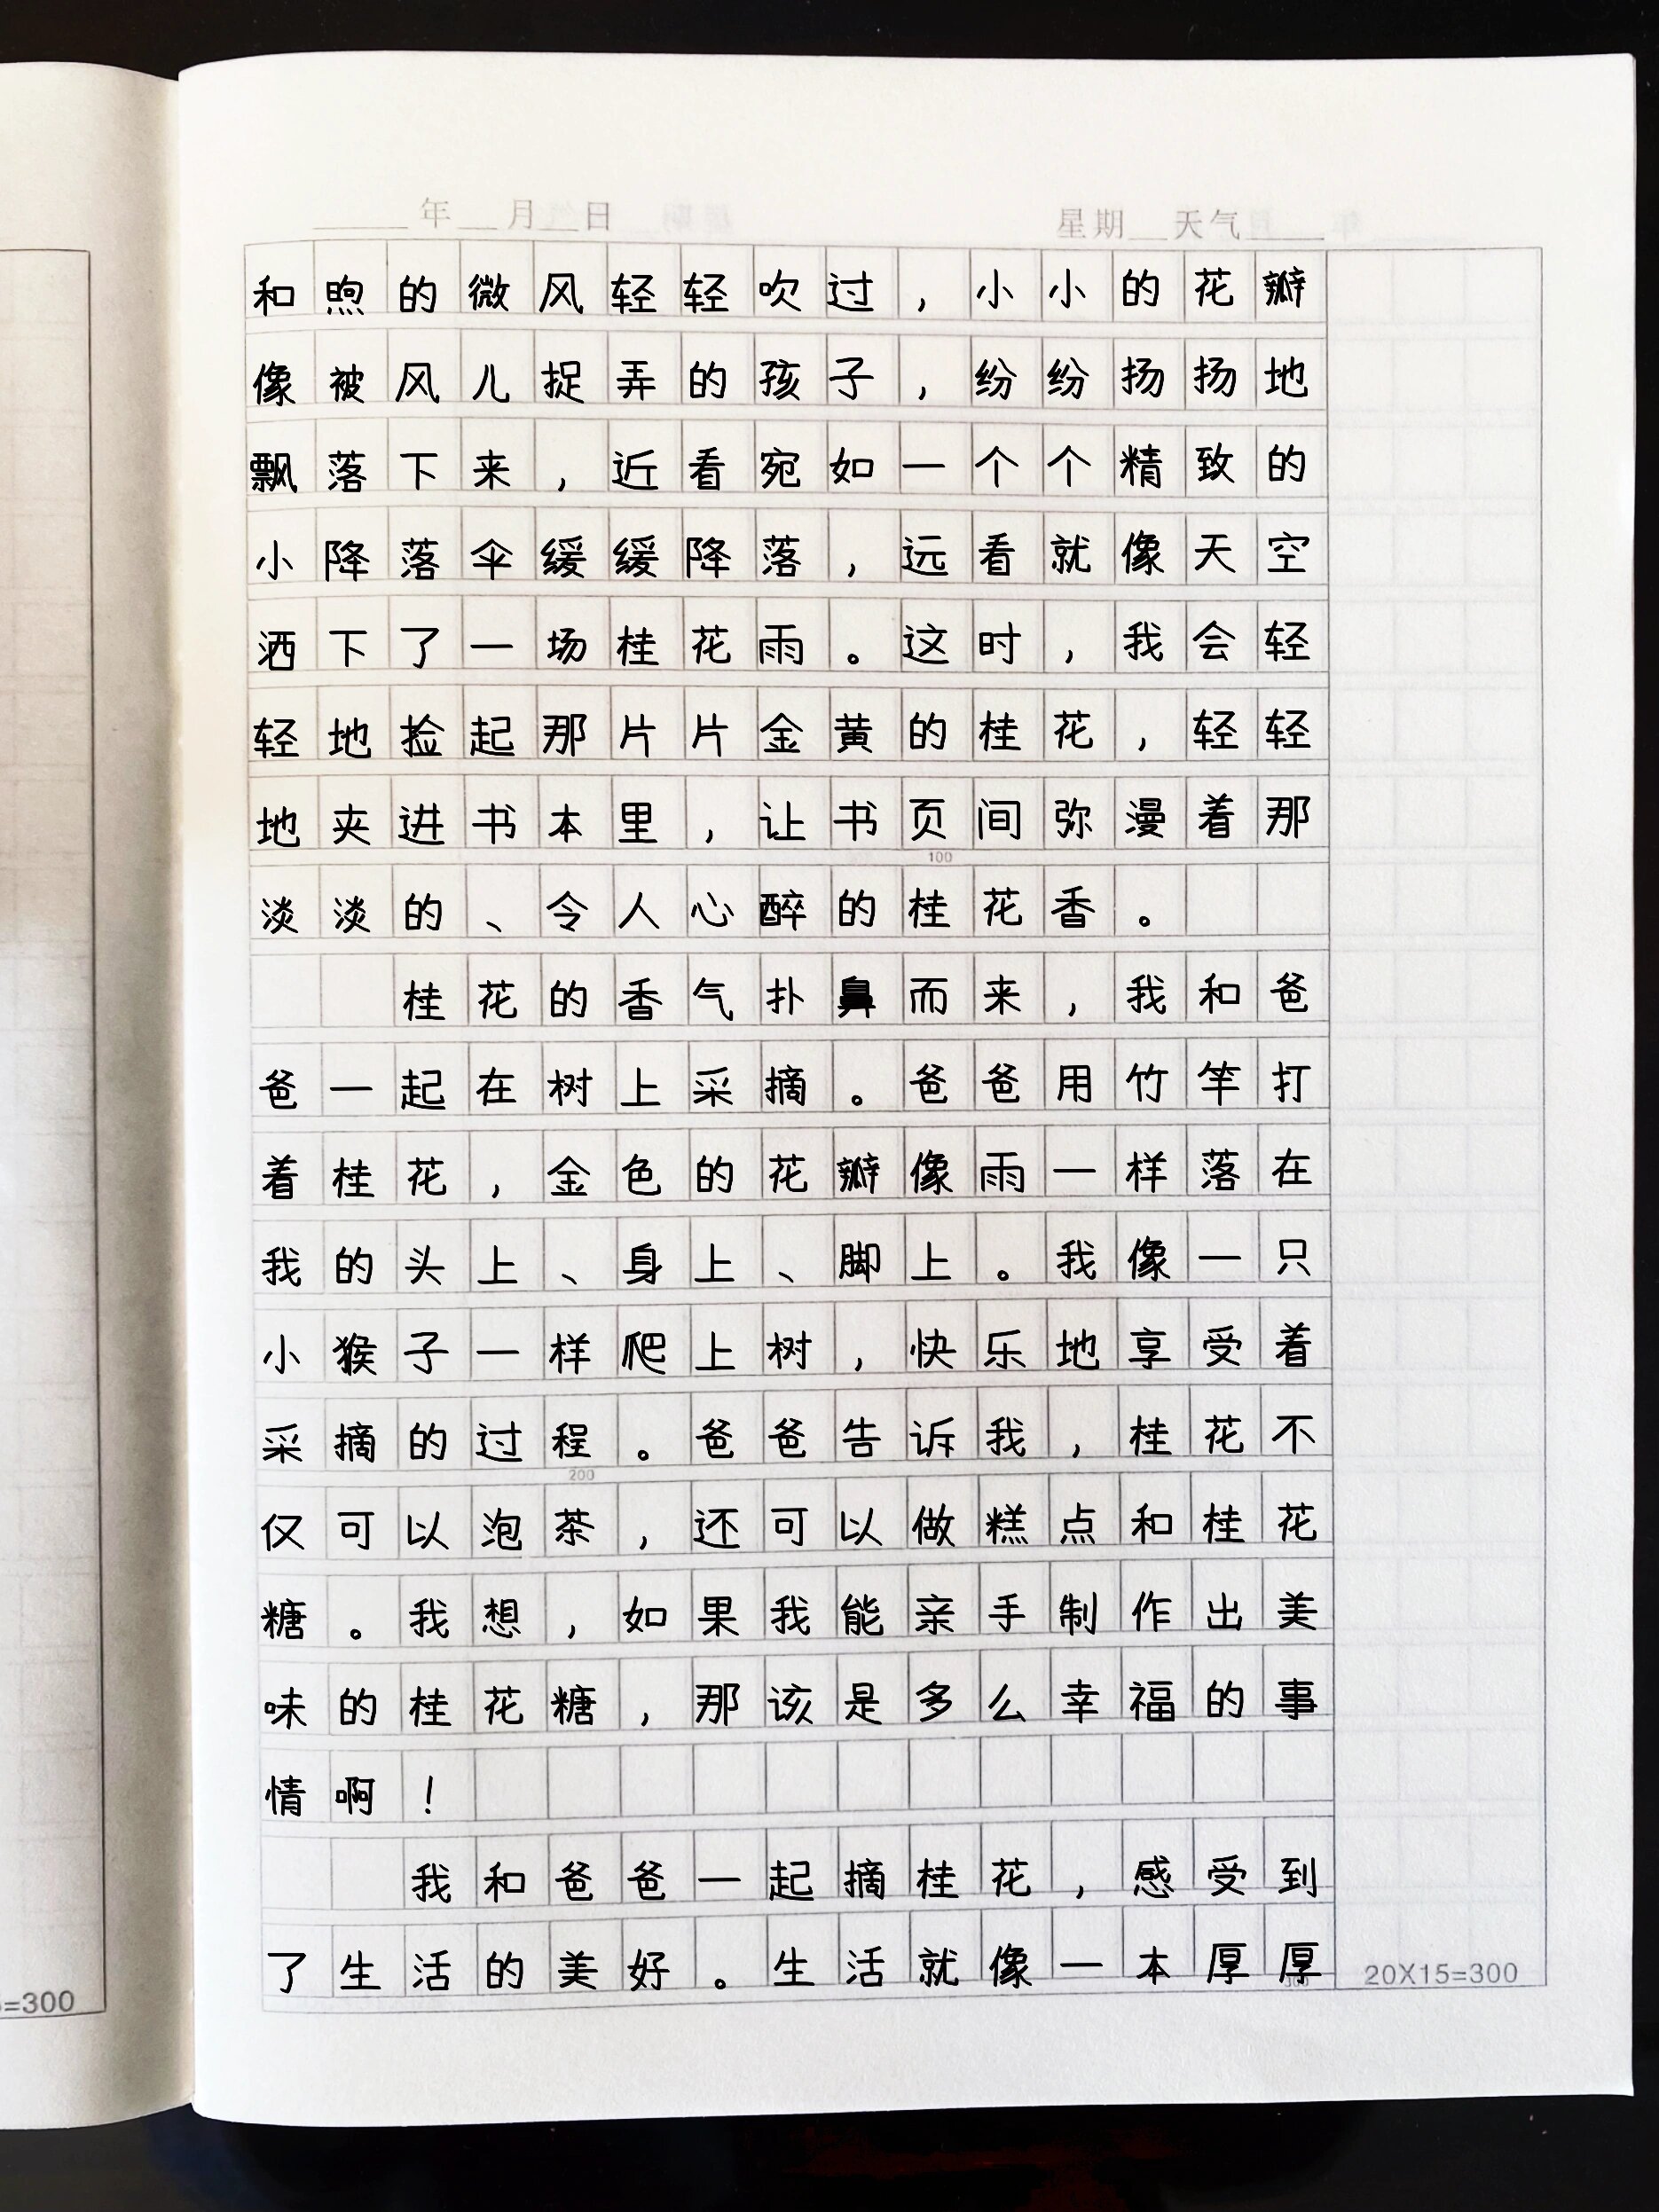 年 月 日 星期 天气
和煦的微风轻轻吹过，小小的花瓣
像被风儿捉弄的孩子，纷纷扬扬地
飘落下来，近看宛如一个个精致的
小降落伞缓缓降落，远看就像天空
洒下了一场桂花雨。这时，我会轻
轻地捡起那片片金黄的桂花，轻轻
地夹进书本里，让书页间弥漫着那
100
淡淡的、令人心醉的桂花香。
桂花的香气扑鼻而来，我和爸
爸一起在树上采摘。爸爸用竹竿打
着桂花，金色的花瓣像雨一样落在
我的头上、身上、脚上。我像一只
小猴子一样爬上树，快乐地享受着
采摘的过程。爸爸告诉我，桂花不
200
仅可以泡茶，还可以做糕点和桂花
糖。我想，如果我能亲手制作出美
味的桂花糖，那该是多么幸福的事
情啊！
我和爸爸一起摘桂花，感受到
了生活的美好。生活就像一本厚厚
300
20X15=300
=300